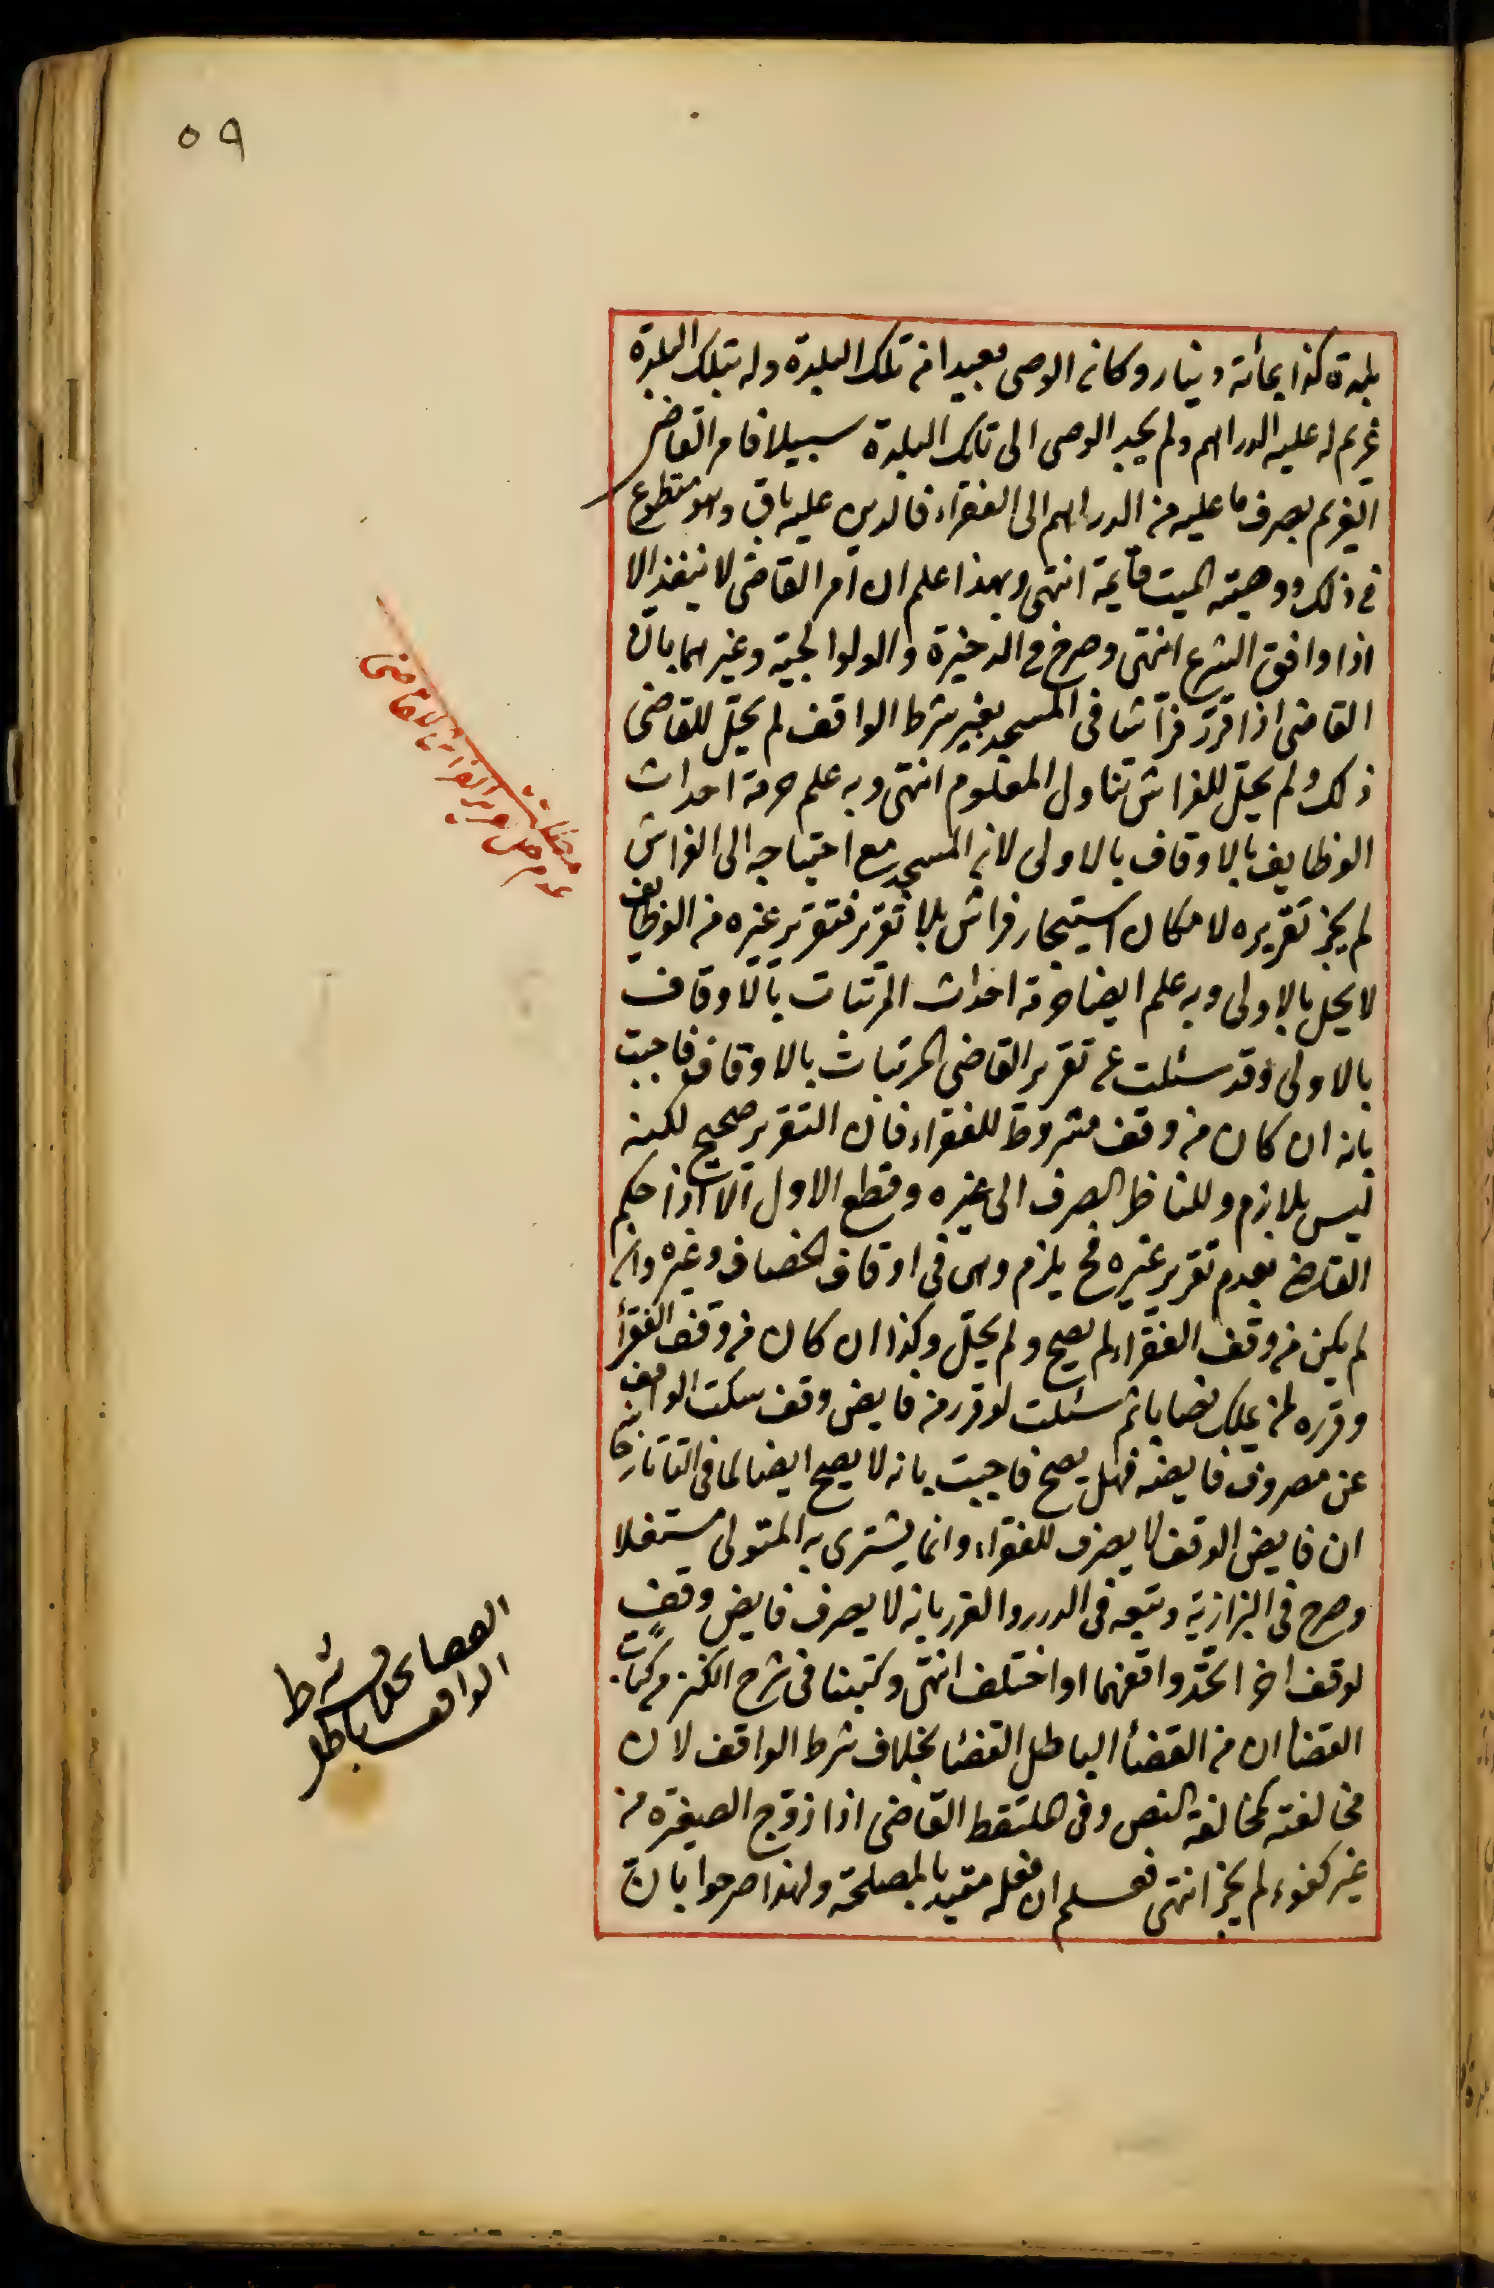 ٥٩
بلدة كذا بمائة دينار وكان الوصى بعيدا من تلك البلدة وله بتلك البلدة
غريم له عليه الدراهم ولم يجد الوصى الى تلك البلدة سبيلا فامر القاضى
الغريم بصرف ما عليه من الدراهم الى الفقراء فالدين عليه باق وهو متطوع
فى ذلك ووصيته الميت قايمة انتهى وبهذا علم ان امر القاضى لا ينفذ الا
اذا وافق الشرع انتهى وصرح فى الذخيرة والولوالجية وغيرهما بان
القاضى اذا قرر فراشا فى المسجد بغير شرط الواقف لم يحل للقاضى
ذلك ولم يحل للفراش تناول المعلوم انتهى وبه علم حرمة احداث
الوظايف بالاوقاف بالاولى لان المسجد مع احتياجه الى الفراش
لم يجز تقريره لامكان استيجار فراش بلا تقرير فتقرير غيره من الوظايف
لا يحل بالاولى وبه علم ايضا حرمة احداث المرتبات بالاوقاف
بالاولى وقد سئلت عن تقرير القاضى المرتبات بالاوقاف فاجبت
بانه ان كان من وقف مشروط للفقراء فان التقرير صحيح لكنه
ليس بلازم وللناظر الصرف الى غيره وقطع الاول الا اذا حكم
القاضى بعدم تقرير غيره فح يلزم وهى فى اوقاف الخصاف وغيره وان
لم يكن من وقف الفقراء لم يصح ولم يحل وكذا ان كان من وقف الفقرأ
وقرره لمن يملك نصابا ثم سئلت لو قرر من فايض وقف سكت الواقف
عن مصروف فايضه فهل يصح فاجبت بانه لا يصح ايضا لما فى التاتارخانية
ان فايض الوقف لا يصرف للفقراء وانما يشترى به المتولى مستغلا
وصرح فى البزازية وتبعه فى الدرر والغرر بانه لا يصرف فايض وقف
لوقف اخر اتحد واقفهما او اختلف انتهى وكتبنا فى شرح الكنز من كتاب
القضأ ان من القضأ الباطل القضا بخلاف شرط الواقف لان
مخالفته كمخالفة النص وفى الملتقط القاضى اذا زوج الصغيرة من
غير كفوء لم يجز انتهى فعلم ان فعله مقيد بالمصلحة ولهذا صرحوا بان
مطلب
عدم حل تقرير الفراش للقاضى
القضا بخلاف شرط
الواقف باطل